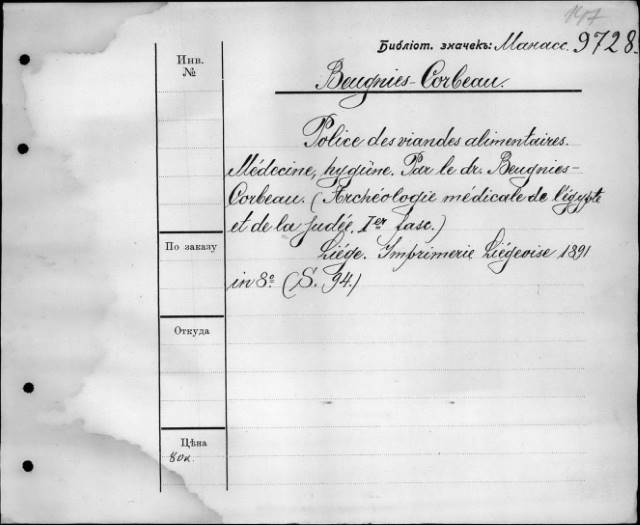 147
Библіот. значекъ: Манасс. 9728.
Инв.
№
Beugnies-Corbeau.
Police des viandes alimentaires.
Médecine, hygiène. Par le dr. Beugnies-
Corbeau. (Archéologie médicale de l'égypte
et de la Judée. Ier fasc.)
Liége. Imprimerie Liégeoise 1891
in 8.° (S. 94.)
По заказу
Откуда
Цѣна
80к.